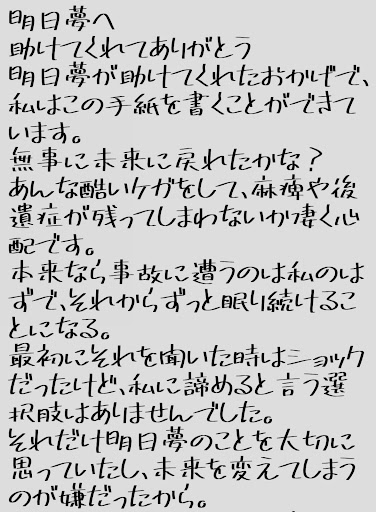 明日夢へ
助けてくれてありがとう
明日夢が助けてくれたおかげで、
私はこの手紙を書くことができて
います。
無事に未来に戻れたかな？
あんな酷いケガをして、麻痺や後
遺症が残ってしまわないか凄く心
配です。
本来なら事故に遭うのは私のは
ずで、それからずっと眠り続けるこ
とになる。
最初にそれを聞いた時はショック
だったけど、私に諦めると言う選
択肢はありませんでした。
それだけ明日夢のことを大切に
思っていたし、未来を変えてしまう
のが嫌だったから。